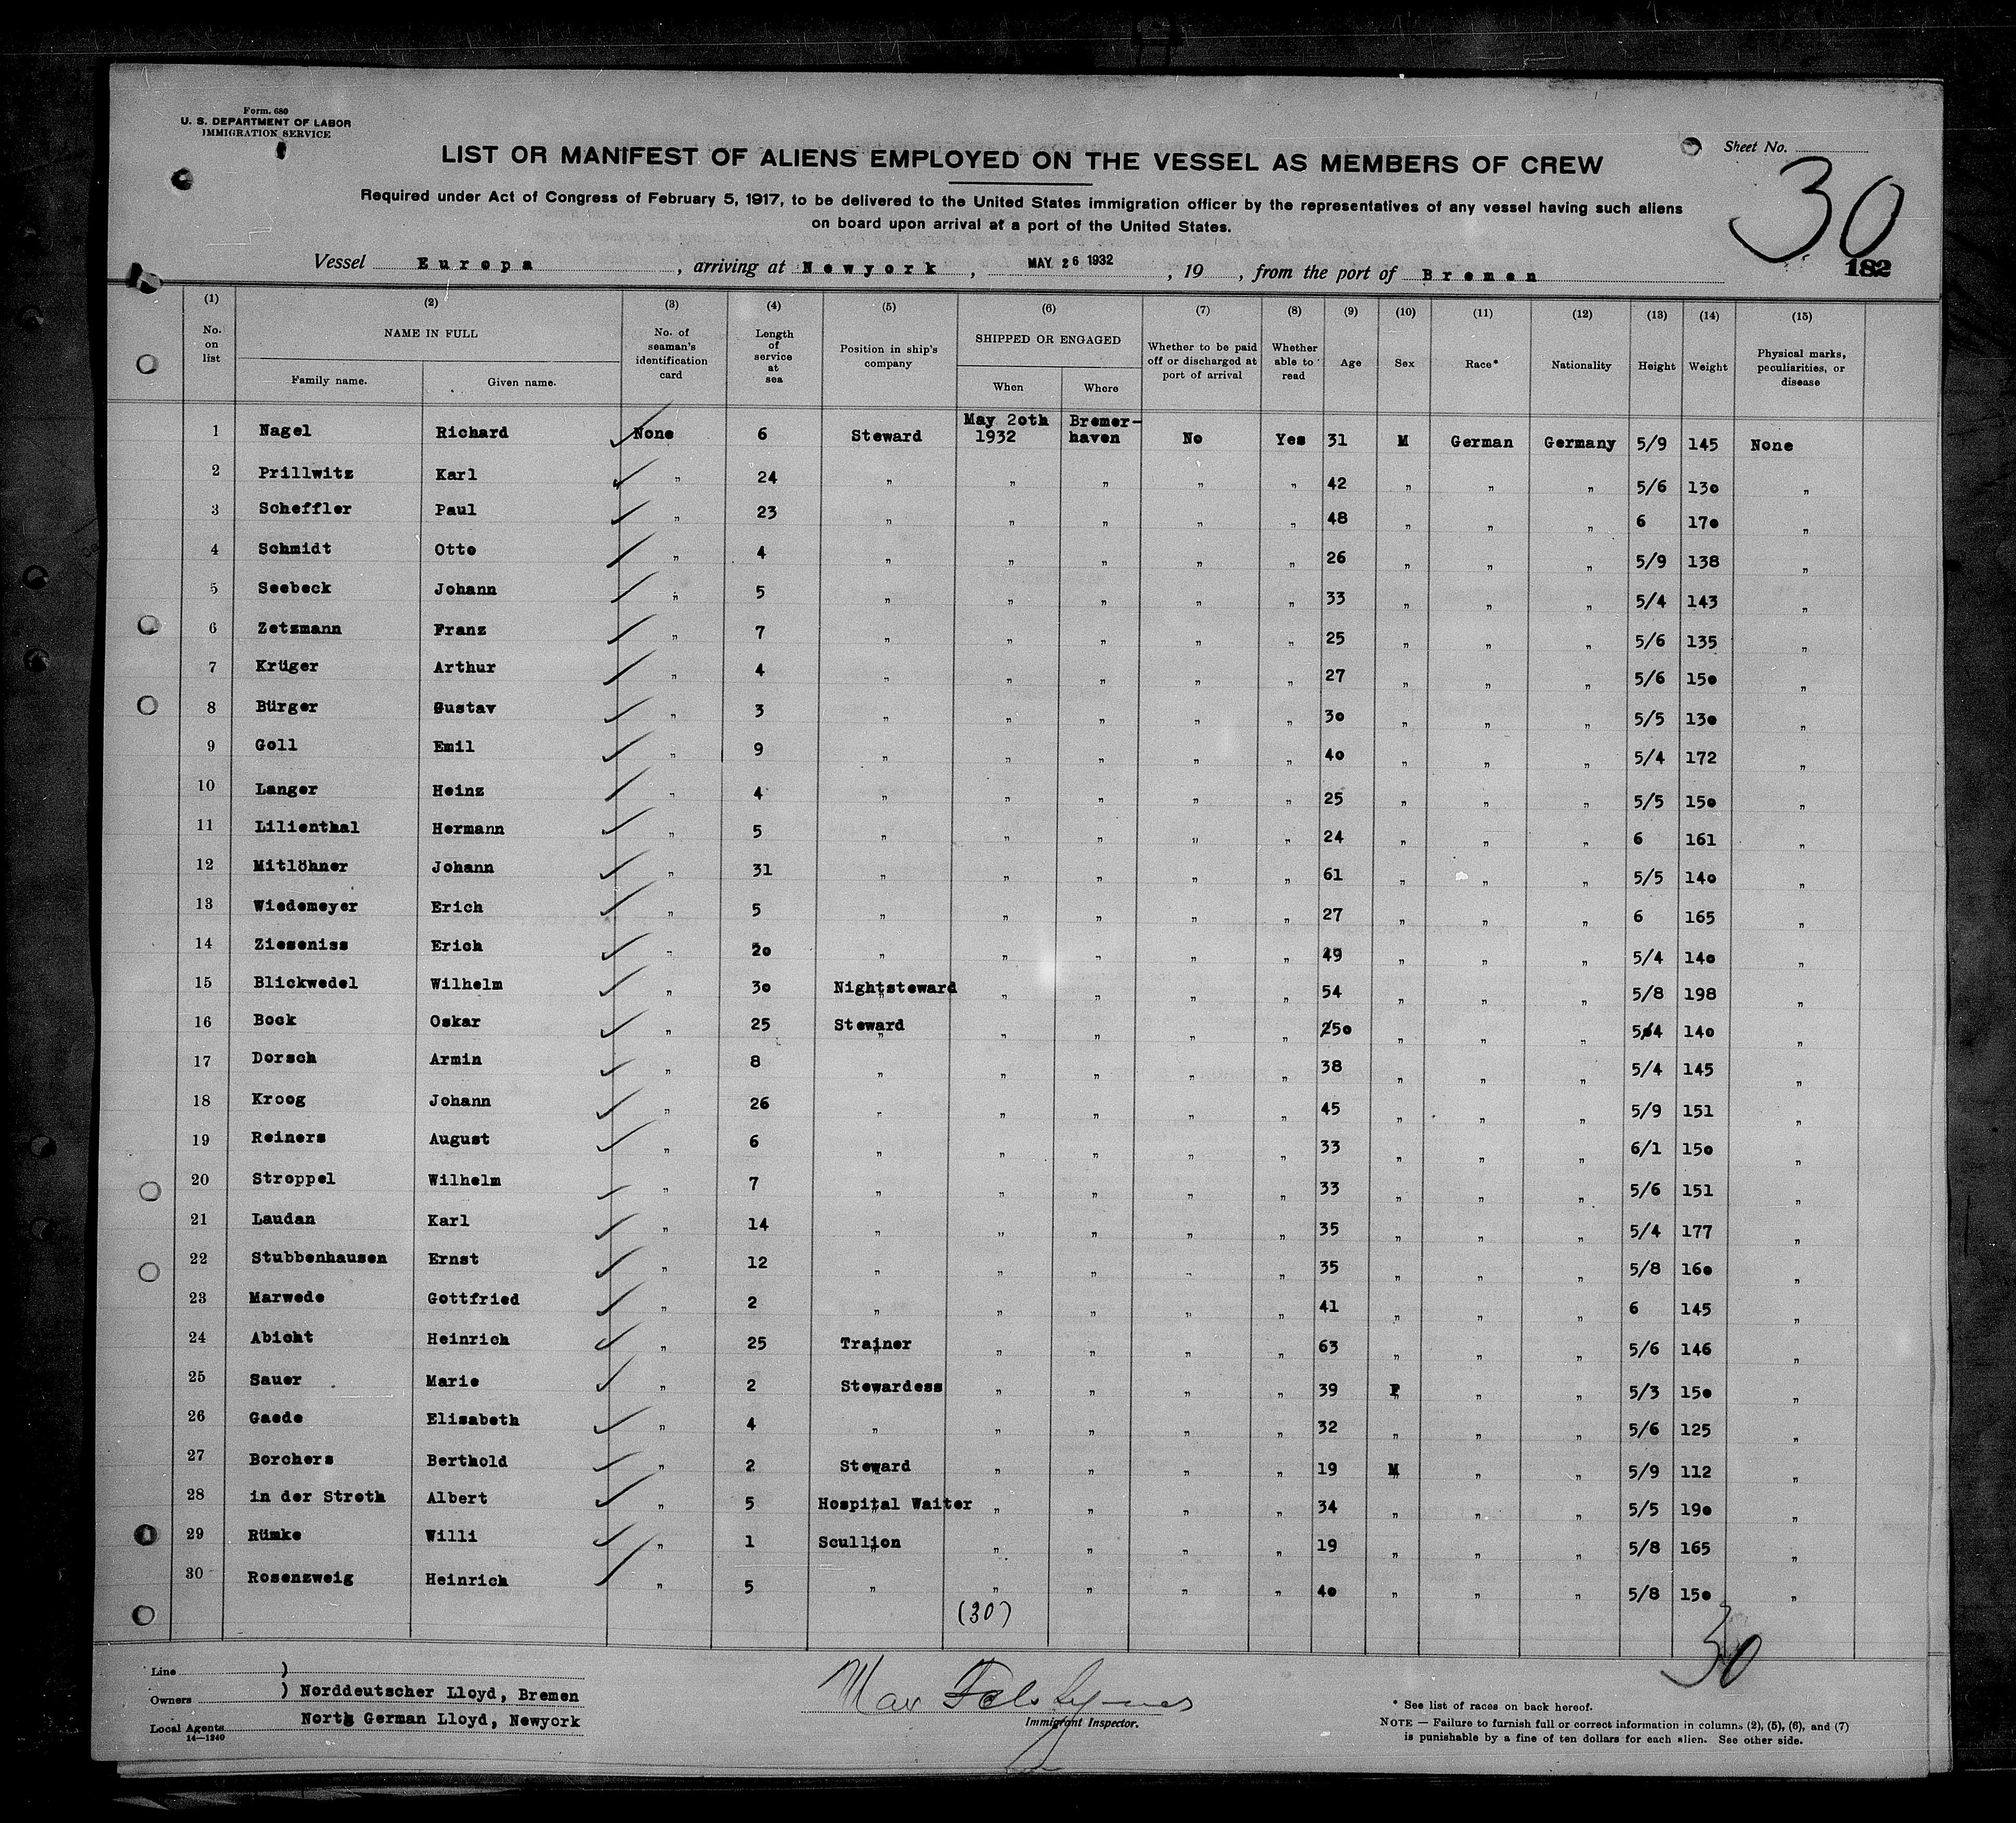 Form. 680
U. S. DEPARTMENT OF LABOR
IMMIGRATION SERVICE
Sheet No.
30
182
LIST OR MANIFEST OF ALIENS EMPLOYED ON THE VESSEL AS MEMBERS OF CREW
Required under Act of Congress of February 5, 1917, to be delivered to the United States immigration officer by the representatives of any vessel having such aliens
on board upon arrival at a port of the United States.
Vessel Europa , arriving at Newyork , MAY 26 1932 , 19 , from the port of Bremen
(1) (2) (3) (4) (5) (6) (7) (8) (9) (10) (11) (12) (13) (14) (15)
No. on list NAME IN FULL Family name. Given name. No. of seaman's identification card Length of service at sea Position in ship's company SHIPPED OR ENGAGED When Where Whether to be paid off or discharged at port of arrival Whether able to read Age Sex Race* Nationality Height Weight Physical marks, peculiarities, or disease
1 Nagel Richard None 6 Steward May 2oth 1932 Bremer-haven No Yes 31 M German Germany 5/9 145 None
2 Prillwitz Karl " 24 " " " " " 42 " " " 5/6 130 "
3 Scheffler Paul " 23 " " " " " 48 " " " 6 170 "
4 Schmidt Otto " 4 " " " " " 26 " " " 5/9 138 "
5 Seebeck Johann " 5 " " " " " 33 " " " 5/4 143 "
6 Zetzmann Franz " 7 " " " " " 25 " " " 5/6 135 "
7 Krüger Arthur " 4 " " " " " 27 " " " 5/6 150 "
8 Bürger Gustav " 3 " " " " " 30 " " " 5/5 130 "
9 Goll Emil " 9 " " " " " 40 " " " 5/4 172 "
10 Langer Heinz " 4 " " " " " 25 " " " 5/5 150 "
11 Lilienthal Hermann " 5 " " " " " 24 " " " 6 161 "
12 Mitlöhner Johann " 31 " " " " " 61 " " " 5/5 140 "
13 Wiedemeyer Erich " 5 " " " " " 27 " " " 6 165 "
14 Zieseniss Erich " 20 " " " " " 49 " " " 5/4 140 "
15 Blickwedel Wilhelm " 30 Nightsteward " " " " 54 " " " 5/8 198 "
16 Bock Oskar " 25 Steward " " " " 50 " " " 5/4 140 "
17 Dorsch Armin " 8 " " " " " 38 " " " 5/4 145 "
18 Kroog Johann " 26 " " " " " 45 " " " 5/9 151 "
19 Reiners August " 6 " " " " " 33 " " " 6/1 150 "
20 Stroppel Wilhelm " 7 " " " " " 33 " " " 5/6 151 "
21 Laudan Karl " 14 " " " " " 35 " " " 5/4 177 "
22 Stubbenhausen Ernst " 12 " " " " " 35 " " " 5/8 160 "
23 Marwede Gottfried " 2 " " " " " 41 " " " 6 145 "
24 Abicht Heinrich " 25 Trainer " " " " 63 " " " 5/6 146 "
25 Sauer Marie " 2 Stewardess " " " " 39 F " " 5/3 150 "
26 Gaede Elisabeth " 4 " " " " " 32 " " " 5/6 125 "
27 Borchers Berthold " 2 Steward " " " " 19 M " " 5/9 112 "
28 in der Stroth Albert " 5 Hospital Waiter " " " " 34 " " " 5/5 190 "
29 Rümke Willi " 1 Scullion " " " " 19 " " " 5/8 165 "
30 Rosenzweig Heinrich " 5 " " " " " 40 " " " 5/8 150 "
(30)
30
Line )
Owners ) Norddeutscher Lloyd, Bremen
Local Agents North German Lloyd, Newyork
14—1240
Max
Immigrant Inspector.
* See list of races on back hereof.
NOTE — Failure to furnish full or correct information in columns (2), (5), (6), and (7)
is punishable by a fine of ten dollars for each alien. See other side.